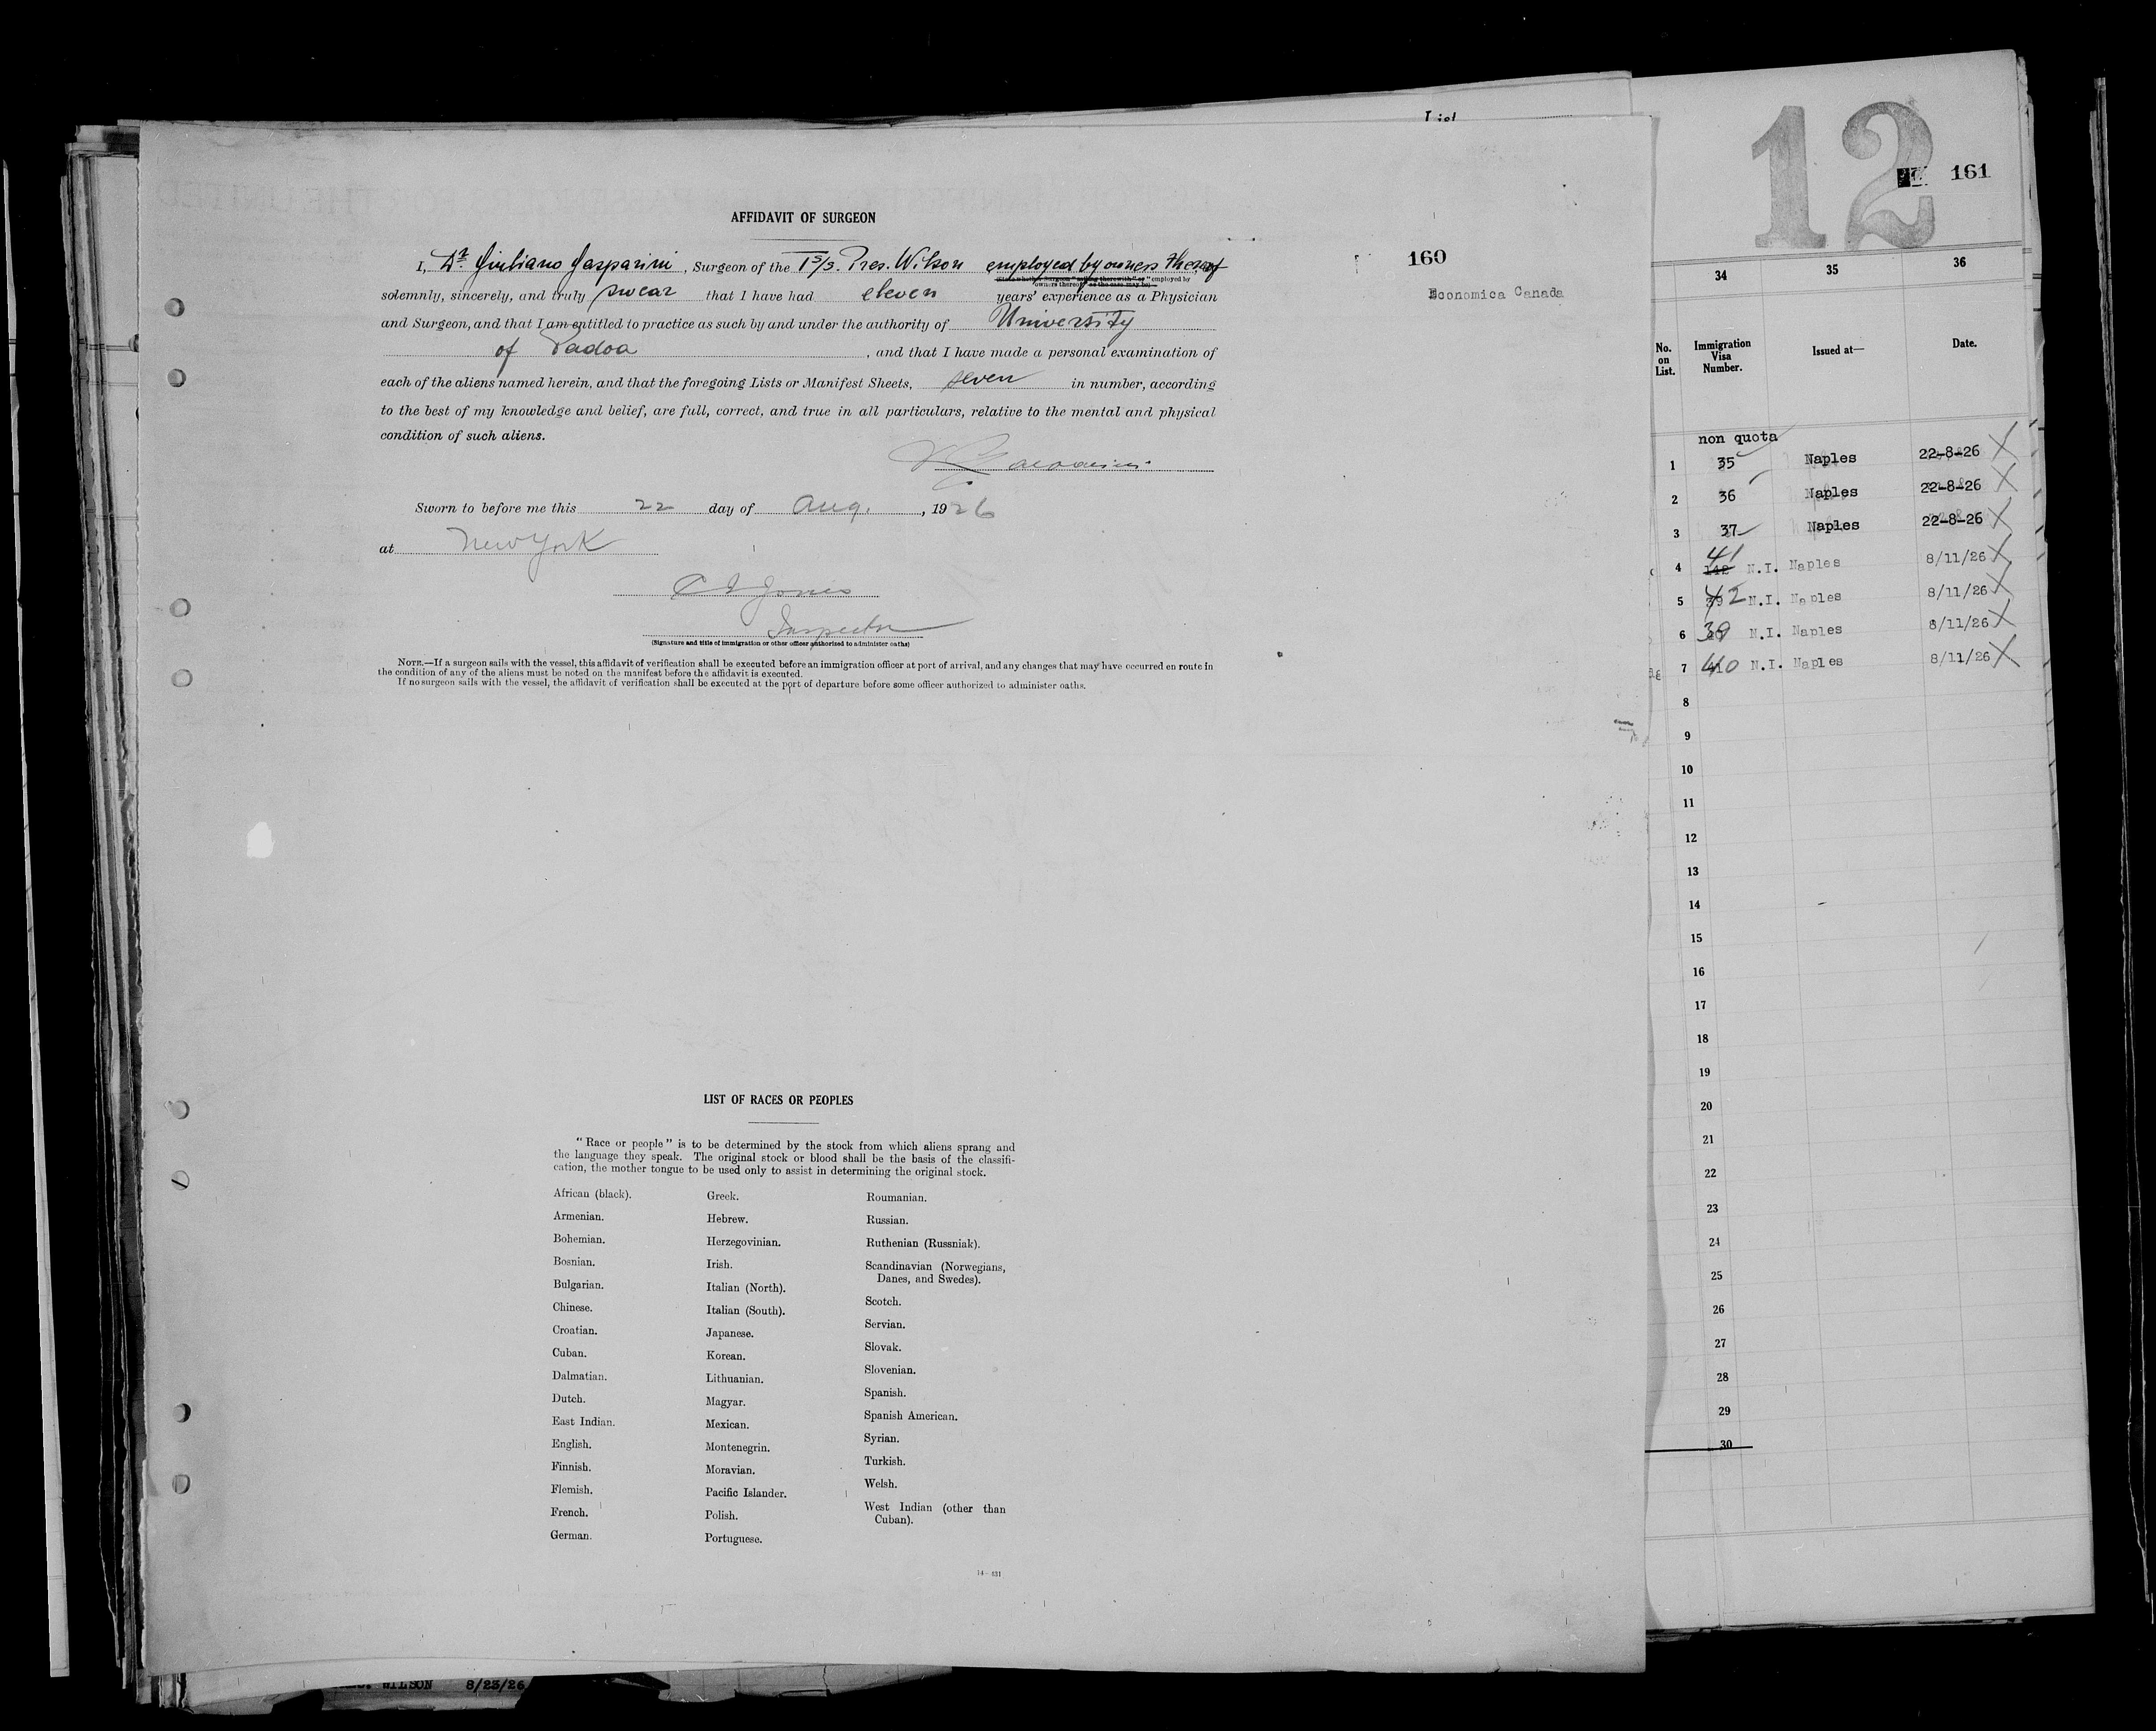 12
161
AFFIDAVIT OF SURGEON
160
Economica Canada
I, Dr. Giuliano Gasparini, Surgeon of the TS/S. Pres. Wilson employed by owners thereof
solemnly, sincerely, and truly swear that I have had eleven years' experience as a Physician
and Surgeon, and that I am entitled to practice as such by and under the authority of University
of Padoa, and that I have made a personal examination of
each of the aliens named herein, and that the foregoing Lists or Manifest Sheets, seven in number, according
to the best of my knowledge and belief, are full, correct, and true in all particulars, relative to the mental and physical
condition of such aliens.
Sworn to before me this 22 day of Aug., 1926
at New York
Jones
Inspector
(Signature and title of immigration or other officer authorized to administer oaths)
NOTE.—If a surgeon sails with the vessel, this affidavit of verification shall be executed before an immigration officer at port of arrival, and any changes that may have occurred en route in
the condition of any of the aliens must be noted on the manifest before the affidavit is executed.
If no surgeon sails with the vessel, the affidavit of verification shall be executed at the port of departure before some officer authorized to administer oaths.
LIST OF RACES OR PEOPLES
"Race or people" is to be determined by the stock from which aliens sprang and
the language they speak. The original stock or blood shall be the basis of the classifi-
cation, the mother tongue to be used only to assist in determining the original stock.
African (black).
Armenian.
Bohemian.
Bosnian.
Bulgarian.
Chinese.
Croatian.
Cuban.
Dalmatian.
Dutch.
East Indian.
English.
Finnish.
Flemish.
French.
German.
Greek.
Hebrew.
Herzegovinian.
Irish.
Italian (North).
Italian (South).
Japanese.
Korean.
Lithuanian.
Magyar.
Mexican.
Montenegrin.
Moravian.
Pacific Islander.
Polish.
Portuguese.
Roumanian.
Russian.
Ruthenian (Russniak).
Scandinavian (Norwegians,
Danes, and Swedes).
Scotch.
Servian.
Slovak.
Slovenian.
Spanish.
Spanish American.
Syrian.
Turkish.
Welsh.
West Indian (other than
Cuban).
WILSON 8/23/26
34 35 36
No. on List. Immigration Visa Number. Issued at— Date.
non quota
1 35 Naples 22-8-26
2 36 Naples 22-8-26
3 37 Naples 22-8-26
4 41 N.I. Naples 8/11/26
5 42 N.I. Naples 8/11/26
6 39 N.I. Naples 8/11/26
7 40 N.I. Naples 8/11/26
8
9
10
11
12
13
14
15
16
17
18
19
20
21
22
23
24
25
26
27
28
29
30